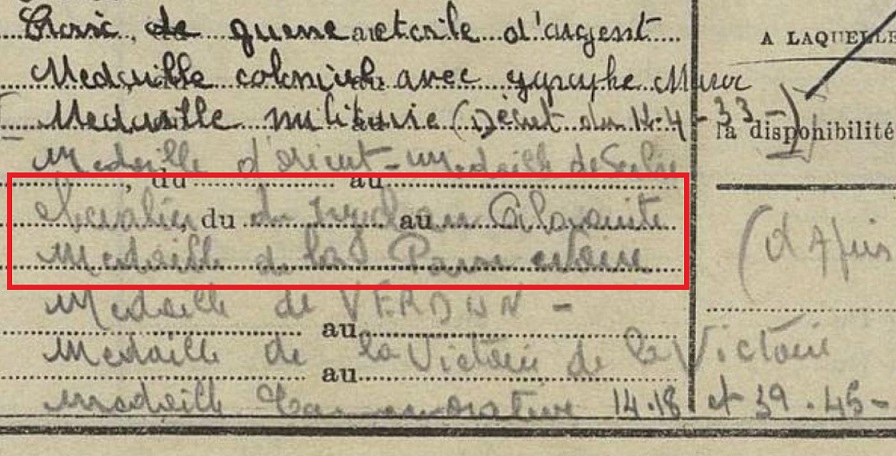 Croix de guerre étoile d'argent
A LAQUELLE
Medaille coloniale avec agraphe Maroc
Medaille militaire (Décret du 14-4-33-)
la disponibilité
Medaille d'orient - medaille de Serbie
, du au
Chevalier du du au
(d'Après
Medaille de la
Medaille de VERDUN -
au
Medaille de la Victoire de la Victoire
au
medaille Commemorative 14.18 et 39.45-